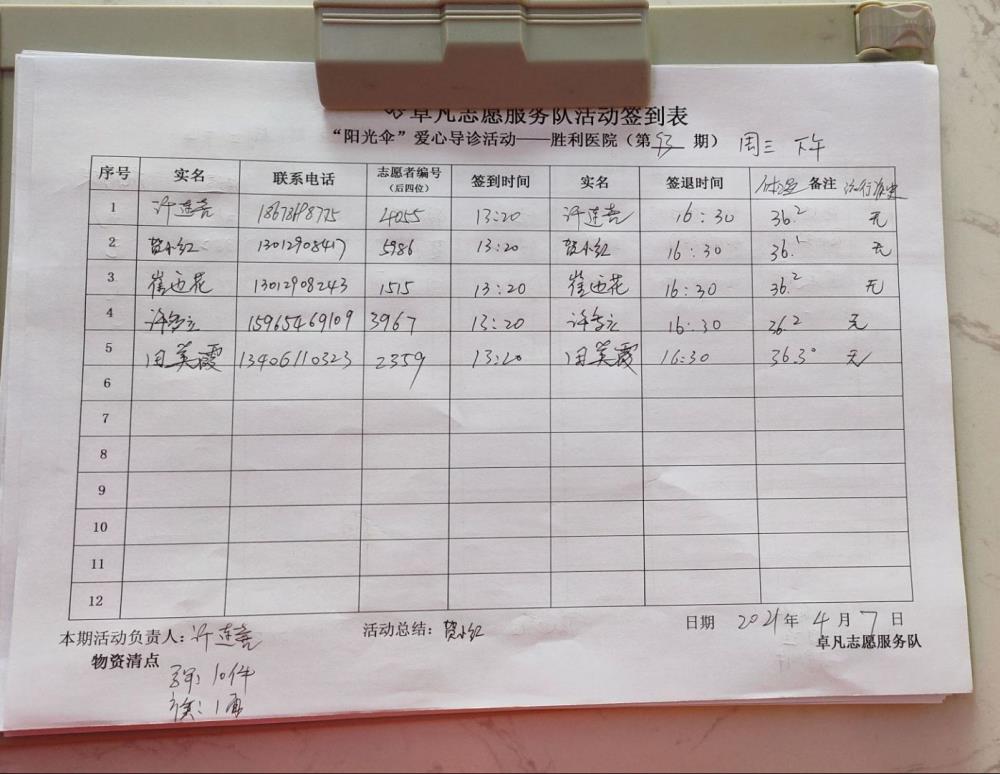 卓凡志愿服务队活动签到表
“阳光伞”爱心导诊活动——胜利医院（第 期） 周三 下午
序号 实名 联系电话 志愿者编号（后四位） 签到时间 实名 签退时间 体温 备注 流行病史
1 许莲香 4055 13:20 许莲香 16:30 36.2 无
2 贺小红 13012908417 5986 13:20 贺小红 16:30 36.1 无
3 崔西花 13012908243 1515 13:20 崔西花 16:30 36.2 无
4 15965469109 3967 13:20 16:30 36.2 无
5 田英霞 13406110323 2359 13:20 田英霞 16:30 36.3° 无
6
7
8
9
10
11
12
本期活动负责人：许莲香 活动总结：贺小红 日期 2021年4月7日
物资清点 卓凡志愿服务队
10件
1面